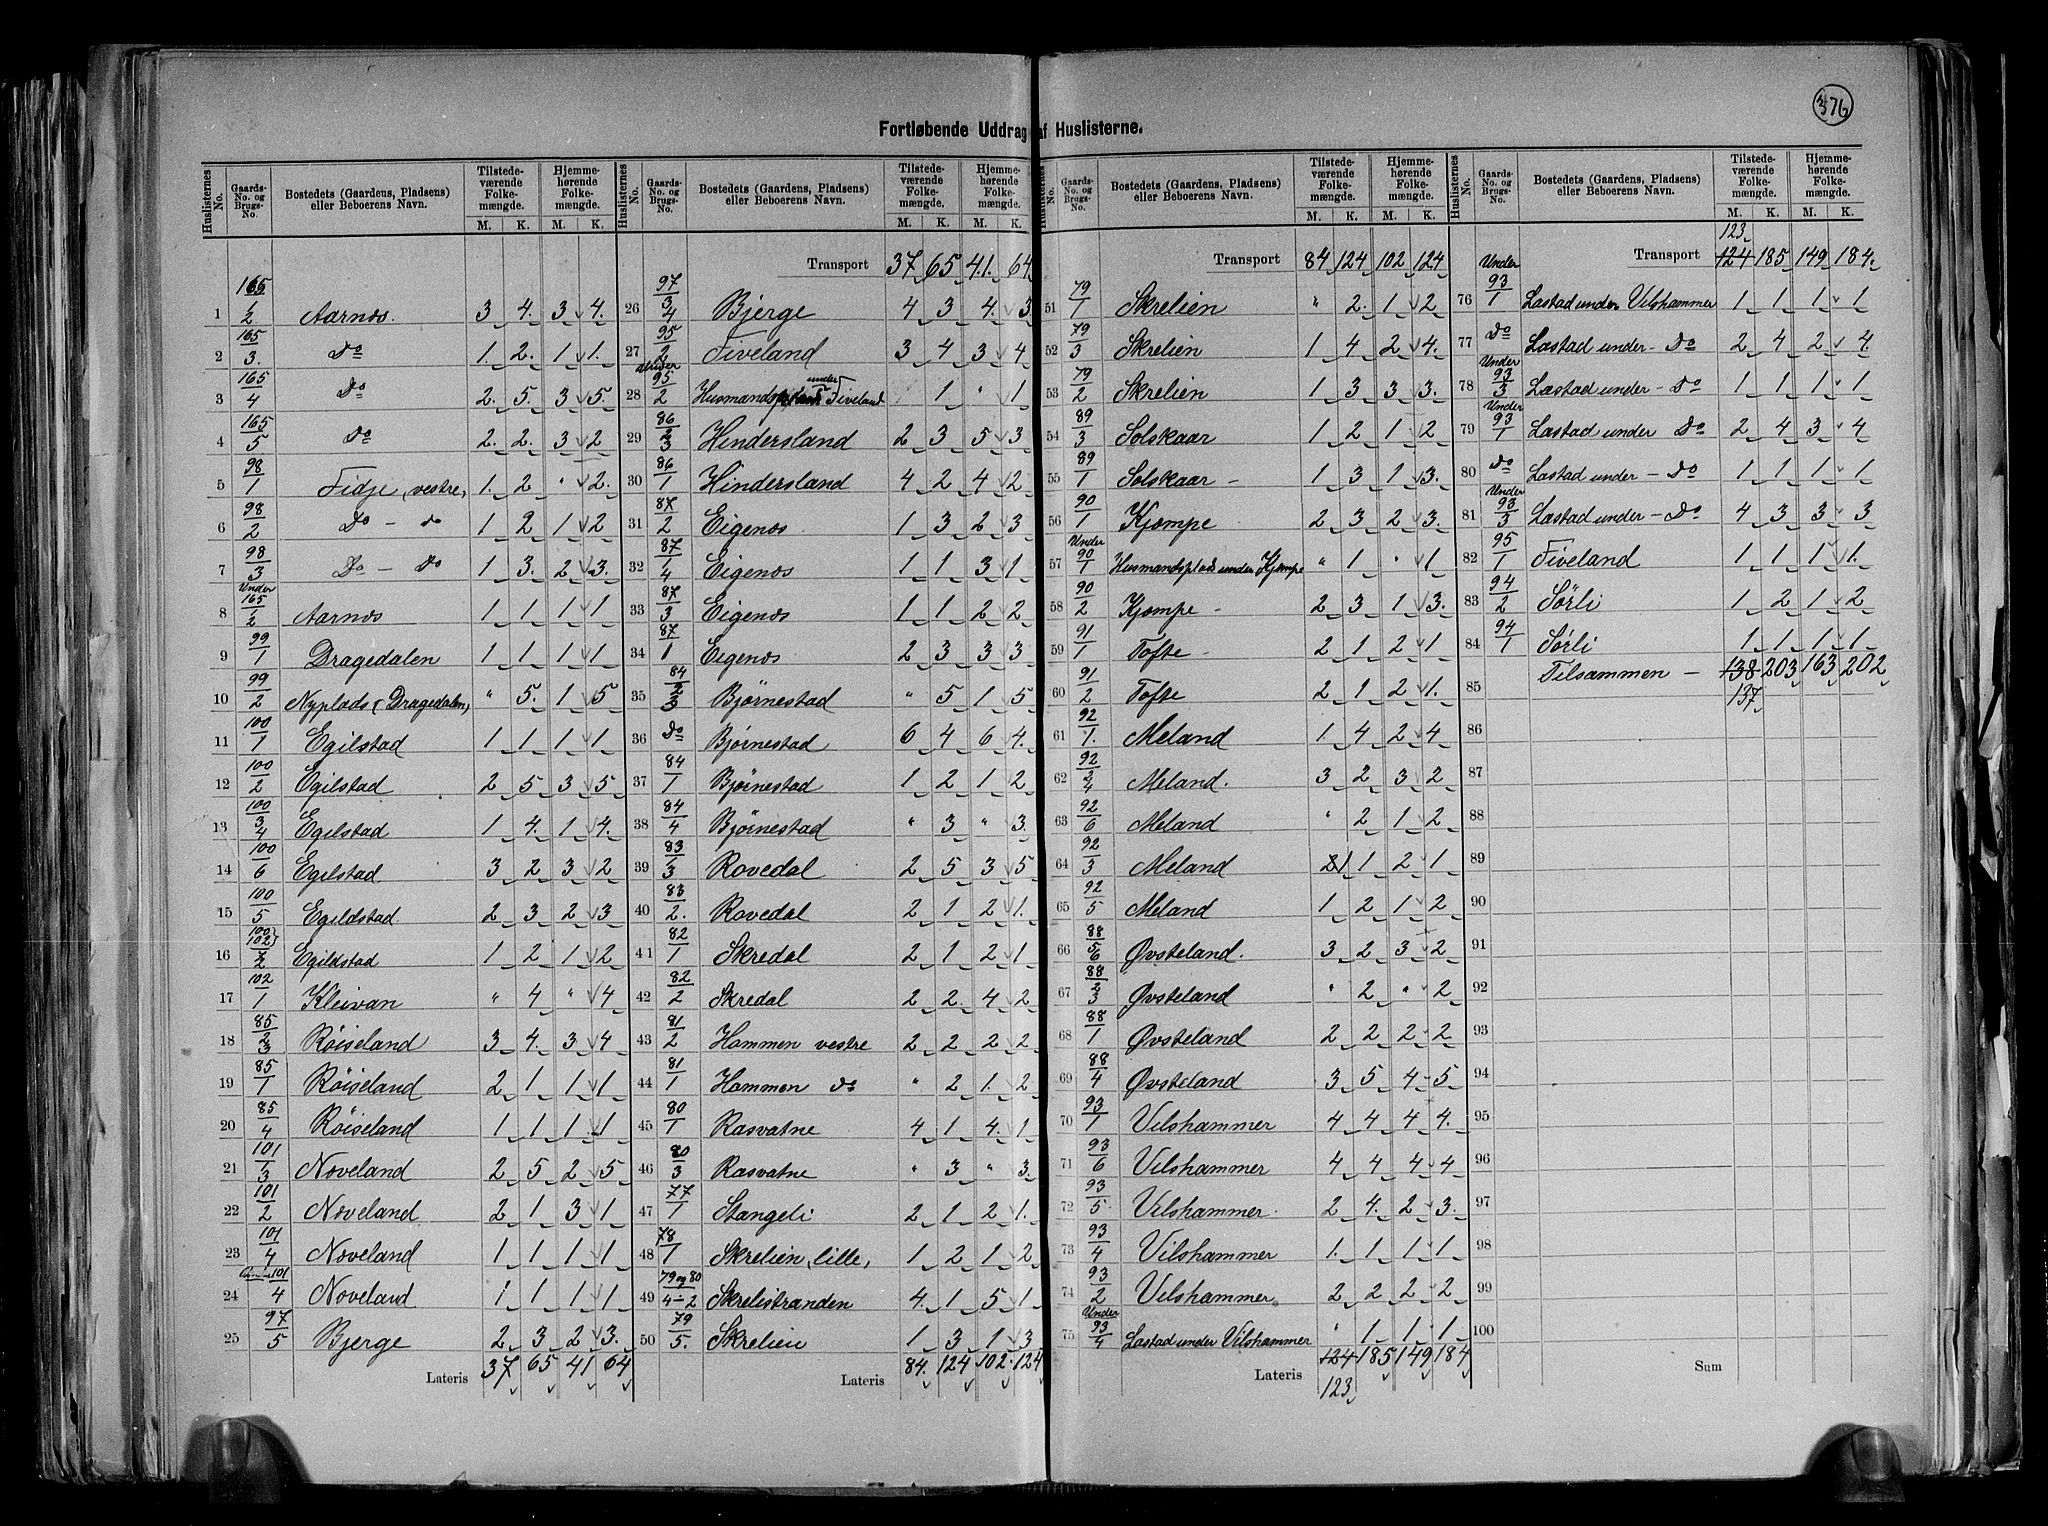 376
Fortløbende Uddrag af Huslisterne.
Huslisternes No. | Gaards-No. og Brugs-No. | Bostedets (Gaardens, Pladsens) eller Beboerens Navn. | Tilstedeværende Folkemængde. M. K. | Hjemmehørende Folkemængde. M. K.
1 165/2 Aarnos. 3 4. 3 4.
2 165/3. Do 1. 2. 1 1.
3 165/4 Do 2. 5. 3 5.
4 165/5 Do 2. 2. 3 2
5 98/1 Fidje, vestre, 1. 2 " 2.
6 98/2 Do - do 1 2 1 2
7 98/3 Do - do 1 3. 2 3.
8 Under 165/2 Aarnos 1 1 1 1
9 99/1 Dragedalen 1 1 1 1
10 99/2 Nyplads (Dragedalen) " 5. 1 5
11 100/1 Egilstad 1 1 1 1
12 100/2 Egilstad 2 5 3 5
13 100/3 4 Egilstad 1 4. 1 4.
14 100/6 Egilstad 3 2 3 2
15 100/5 Egildstad 2 3 2 3
16 Egildstad 1 2 1 2
17 102/1 Kleivan " 4 " 4
18 85/2 3 Röiseland 3 4. 3 4
19 85/1 Röiseland 2 1 1 1
20 85/4 Röiseland 1 1 1 1
21 101/1 3 Noveland 2 5 2 5
22 101/2 Noveland 2 1 3 1
23 101/4 Noveland 1 1 1 1
24 Under 101/4 Noveland 1 1 1 1
25 97/5 Bjerge 2 3 2 3.
Lateris 37 65 41 64
Huslisternes No. | Gaards-No. og Brugs-No. | Bostedets (Gaardens, Pladsens) eller Beboerens Navn. | Tilstedeværende Folkemængde. M. K. | Hjemmehørende Folkemængde. M. K.
Transport 37 65 41. 64
26 97/3 4 Bjerge 4 3 4. 3
27 95/2 Fiveland 3 4 3 4
28 Under 95/2 Husmandsplads under Fiveland 1 " 1
29 86/2 3 Hindersland 2 3 5 3
30 86/1 Hindersland 4 2 4 2
31 87/2 Eigenos 1 3 2 3
32 87/1 4 Eigenos 1 1 3 1
33 87/3 Eigenos 1 1 2 2
34 87/1 Eigenos 2 3 3 3
35 84/2 3 Bjørnestad " 5 1 5
36 Do Bjørnestad 6 4 6 4.
37 84/1 Bjørnestad 1 2 1 2
38 84/4 Bjørnestad " 3 " 3.
39 83/1 3 Rovedal 2 5 3 5
40 83/2. Rovedal 2 1 2 1.
41 82/1 Skredal 2 1 2 1
42 82/2 Skredal 2 2. 4 2
43 81/2 Hommen vestre 2 2 2 2
44 81/1 Hommen do " 2 1. 2
45 80/1 Rasvatne 4 1 4. 1
46 80/3 Rasvatne " 3 " 3.
47 77/1 Stangeli 2 1 2 1.
48 78/1 Skrelien, lille, 1 2 1 2
49 79 og 80/4-2 Skrelistranden 4. 1 5 1
50 79/5. Skrelien 1 3 1 3
Lateris 84. 124 102. 124
Huslisternes No. | Gaards-No. og Brugs-No. | Bostedets (Gaardens, Pladsens) eller Beboerens Navn. | Tilstedeværende Folkemængde. M. K. | Hjemmehørende Folkemængde. M. K.
Transport 84 124 102 124
51 79/1 Skrelien " 2. 1 2
52 79/3 Skrelien 1 4 2 4.
53 79/2 Skrelien 1 3 3 3.
54 89/3 Solskaar 1 2 1 2
55 89/1 Solskaar - 1 3 1 3.
56 90/1 Kjømpe - 2 3 2 3.
57 Under 90/1 Husmandsplads under Kjømpe " 1 " 1
58 90/2 Kjømpe - 2 3 1 3.
59 91/1 Tofte - 2 1 2 1
60 91/2 Tofte 2 1 2 1.
61 92/1. Meland 1 4 2 4
62 92/2 4 Meland. 3 2 3 2
63 92/6 Meland " 2 1 2
64 92/3 Meland 1 1 2 1
65 92/5 Meland 1 2 1 2
66 88/5 6 Øvsteland. 3 2 3 2
67 88/2 3 Øvsteland " 2 " 2
68 88/1 Øvsteland 2 2 2 2
69 88/4 Øvsteland 3 5 4 5
70 93/1 Vilshammer 4 4 4 4.
71 93/6 Vilshammer 4 4 4 4
72 93/5 Vilshammer. 2 4. 2 3.
73 93/4 Vilshammer 1. 1 1 1
74 93/2 Vilshammer. 2 2 2 2
75 Under 93/4 Lastad under Vilshammer " 1 1 1
Lateris 124 185 149 184
123
Huslisternes No. | Gaards-No. og Brugs-No. | Bostedets (Gaardens, Pladsens) eller Beboerens Navn. | Tilstedeværende Folkemængde. M. K. | Hjemmehørende Folkemængde. M. K.
123
Transport 124 185 149 184.
76 Under 93/1 Lastad under Vilshammer 1 1 1 1
77 Do Lastad under - Do 2 4 2 4.
78 Under 93/3 Lastad under - Do 1 1 1 1
79 Under 93/1 Lastad under Do 2 4 3 4
80 Do Lastad under - Do 1 1 1 1
81 Under 93/3 Lastad under - Do 4 3 3 3
82 95/1 Fiveland 1 1 1 1.
83 94/2 Sørli 1 2 1 2
84 94/1 Sørli 1 1 1 1
85 Tilsammen - 138 203 163 202
137
86
87
88
89
90
91
92
93
94
95
96
97
98
99
100
Sum